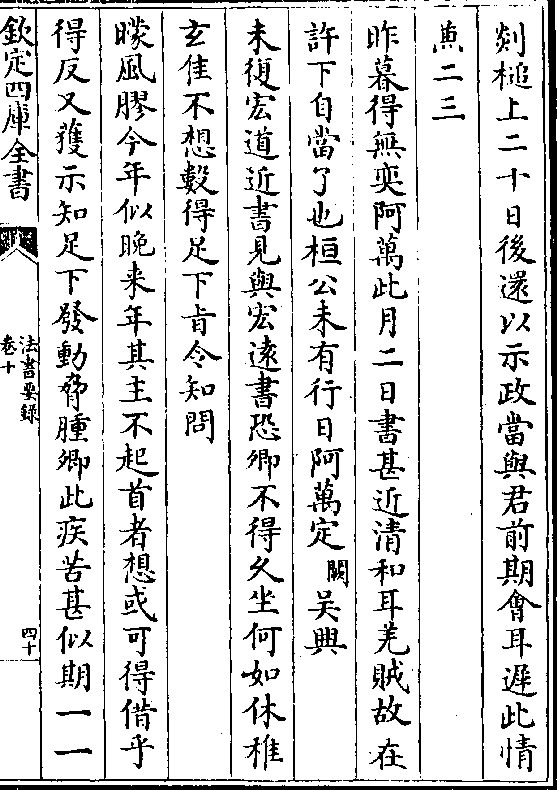 剡槌上二十日後還以示政當與君前期會耳遲此情
兼二三
昨暮得無奕阿萬此月二日書甚近清和耳羌賊故在
許下自當了也桓公未有行日阿萬定闕吳興
未復宏道近書見與宏遠書恐卿不得久坐何如休稚
玄佳不想數得足下旨令知問
曚風膠今年似晚来年其主不起首者想或可得借乎
得反又獲示知足下發動脅腫卿此疾苦甚似期一一
欽定四庫全書
法書要録
卷十
四十